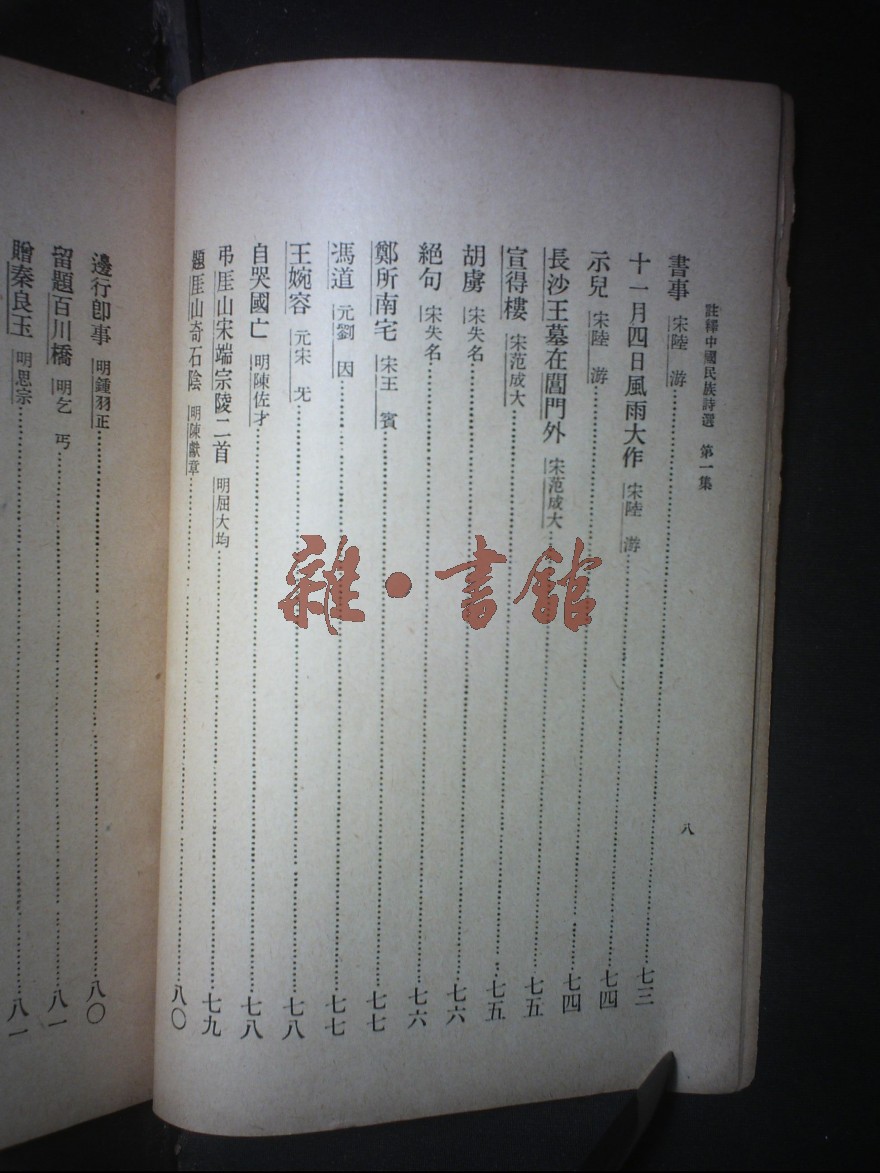 註釋中國民族詩選 第一集
八
書事 宋陸 游……七三
十一月四日風雨大作 宋陸 游……七四
示兒 宋陸 游……七四
長沙王墓在閶門外 宋范成大……七五
宣得樓 宋范成大……七五
胡虜 宋失名……七六
絕句 宋失名……七六
鄭所南宅 宋王 賓……七七
馮道 元劉 因……七七
王婉容 元宋 无……七八
自哭國亡 明陳佐才……七八
弔厓山宋端宗陵二首 明屈大均……七九
題厓山奇石陰 明陳獻章……八〇
邊行卽事 明鍾羽正……八〇
留題百川橋 明乞 丐……八一
贈秦良玉 明思宗……八一
雜·書館